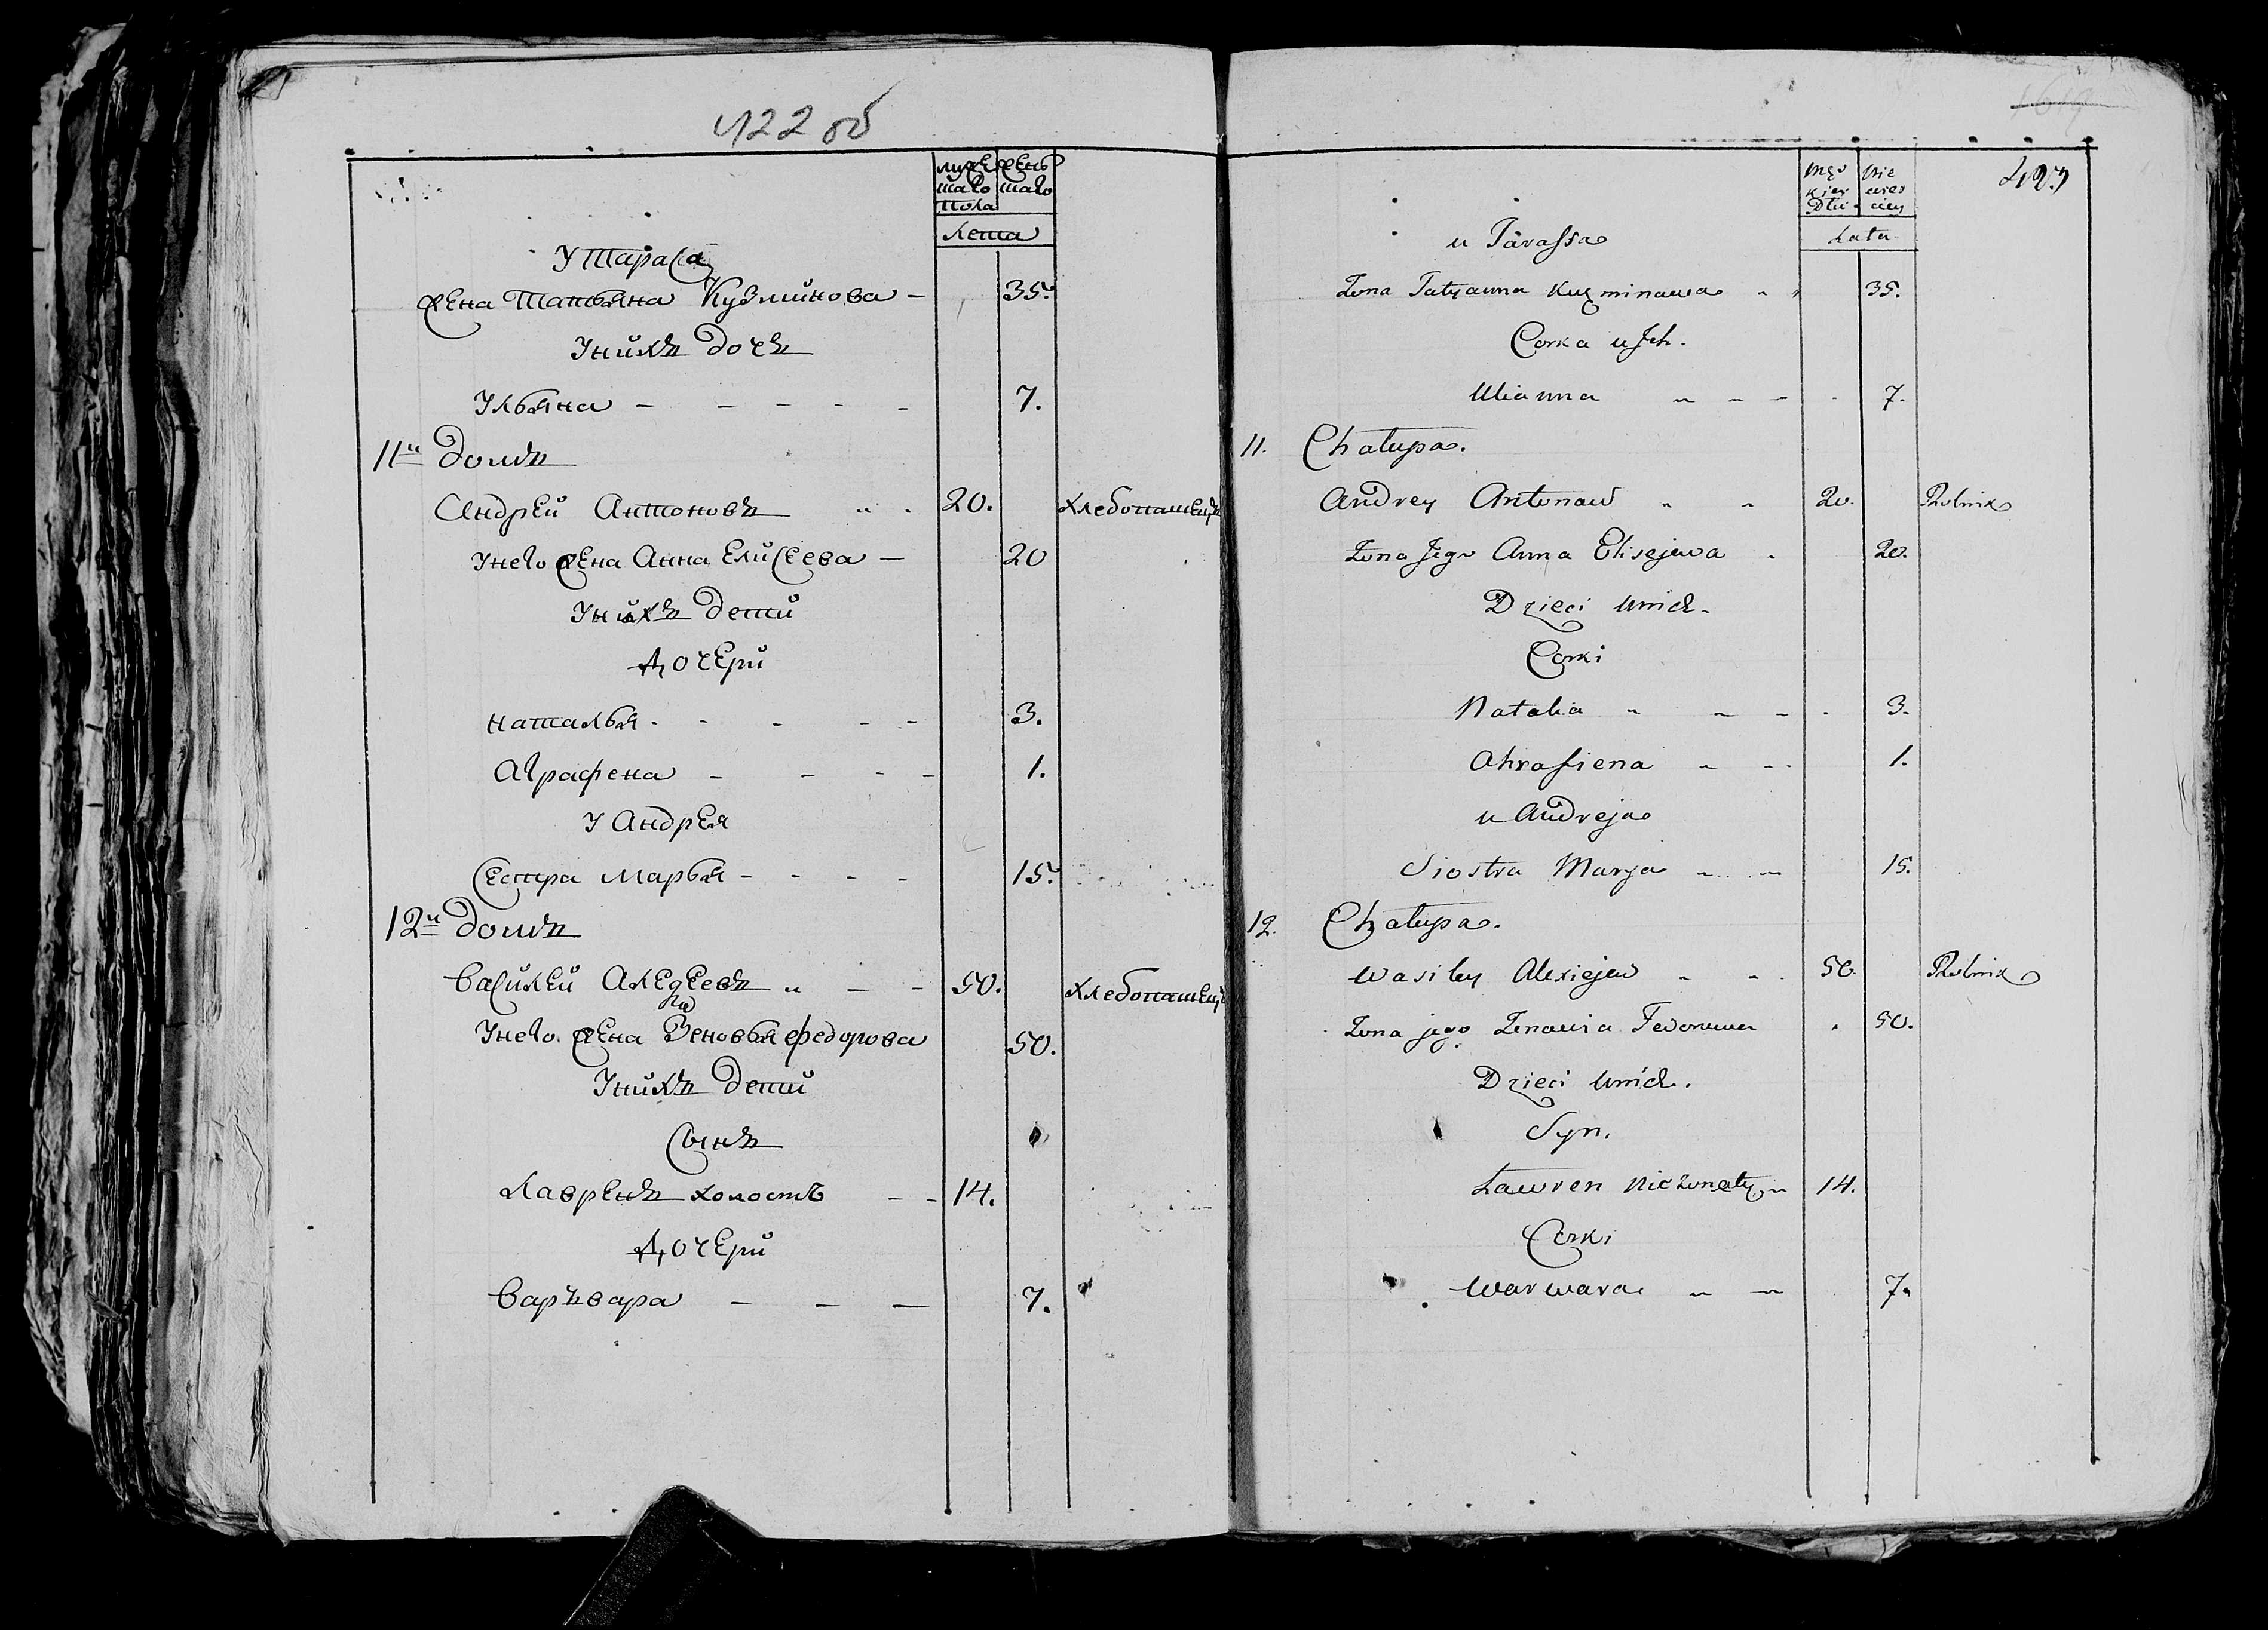 422 об
мужескаго
женскаго
пола
лета
У Тараса
жена Татьяна Кузминова 35.
У них доч
Ульяна 7.
11й домъ
Андрей Антоновъ 20. хлебопашецъ
У него жена Анна Елисеева 20
У них дети
Дочери
Наталья 3.
Аграфена 1.
У Андрея
Сестра Марья 15.
12й домъ
Василей Алексеевъ 50. хлебопашецъ
У него жена Зеновья Федорова 50.
У них дети
Сынъ
Лаврен холостъ 14.
Дочери
Варъвара 7.
1619
423
Męż
kiey
Płci
Nie
wies
ciey
Lata
u Tarassa
Żona Tatyanna Kuzminawa 35.
Corka u Ich.
Ulianna 7.
11. Chałupa.
Andrey Antonaw 20. Rolnik
Żona Jego Anna Elisejewa 20.
Dzieci Unich.
Corki
Natalia 3.
Ahrafiena 1.
u Andreja
Siostra Marya 15.
12. Chałupa.
Wasiley Alexiejew 50. Rolnik
Żona jego Zenowia Fedorowa 50.
Dzieci Unich.
Syn.
Ławren Nieżonaty 14.
Corki
Warwara 7.